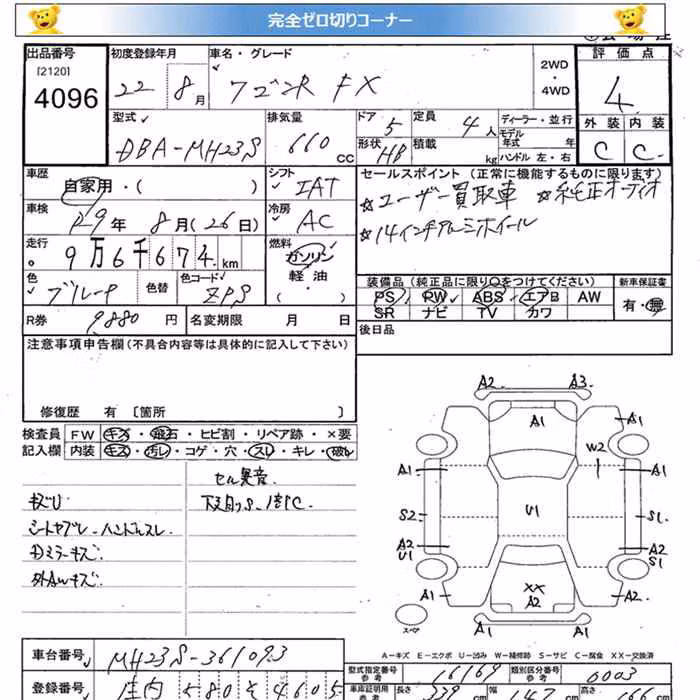 完全ゼロ切りコーナー
出品番号
[2120]
4096
初度登録年月
22 8月
車名・グレード
ワゴンR FX
2WD
・
4WD
評価点
4
外装 内装
C C
型式
DBA-MH23S
排気量
660 CC
ドア 5
形状 HB
定員 4人
積載 kg
ディーラー・並行
モデル
年式 年
ハンドル 左・右
車歴
自家用・( )
シフト
IAT
セールスポイント (正常に機能するものに限ります)
☆ユーザー買取車 ☆純正オーディオ
☆14インチアルミホイール
車検
29年 8月(26日)
冷房
AC
走行
9万6千674km
燃料
ガソリン
軽油
( ・ )
色
色替
色コード
ZPS
装備品 (純正品に限り○をつけてください)
PS PW ABS エアB AW
SR ナビ TV カワ
新車保証書
有・無
R券 9880円
名変期限 月 日
後日品
注意事項申告欄 (不具合内容等は具体的に記入して下さい)
修復歴 有 [箇所 ]
検査員 FW キズ・飛石・ヒビ割・リペア跡・×要
記入欄 内装 キズ・汚し・コゲ・穴・スレ・キレ・破れ
セル異音
下廻りS
シートヤブレ ハンドルスレ
ミラーキズ
外AWキズ
A2 A3
A1 A1
W2
A1 A1
S2 U1 S1
A2 U1 A2 S1
A1 XX A2 A1
スペア
A=キズ E=エクボ U=凹み W=補修跡 S=サビ C=腐食 XX=交換済
車台番号 MH23S-361093
登録番号 庄内 580 そ 4605
型式指定番号
参考
16169
類別区分番号
参考
0003
車庫証明用
参考
長さ 339cm 幅 147cm 高さ 166cm